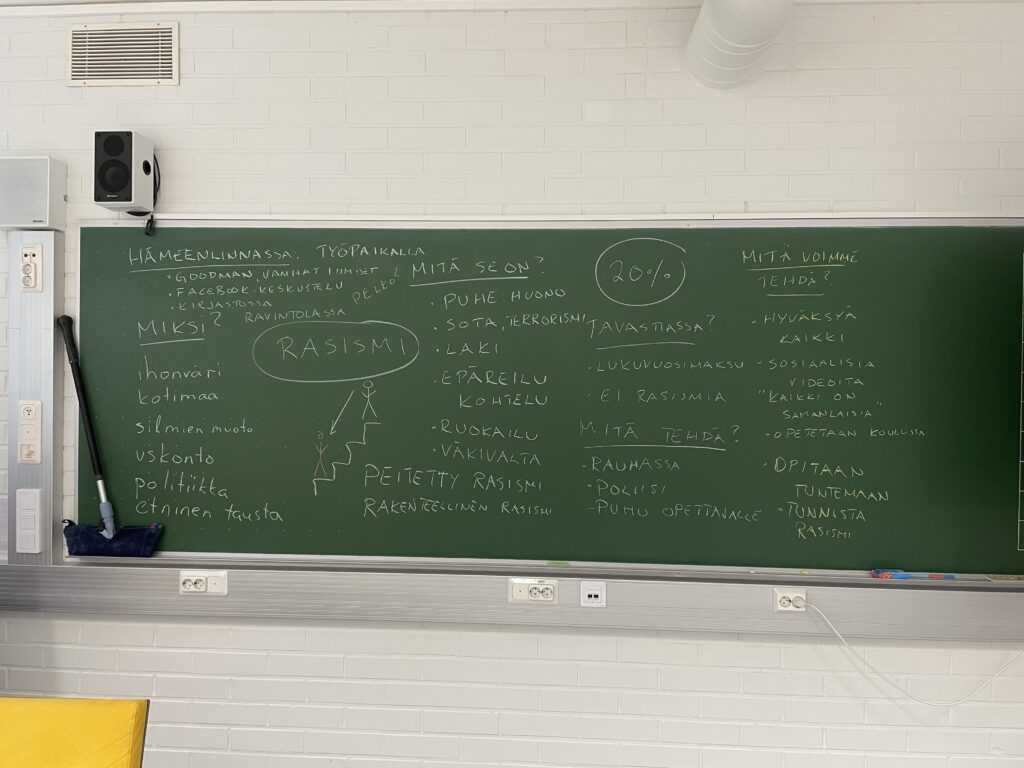 HÄMEENLINNASSA: TYÖPAIKALLA
• GOODMAN, VANHAT IHMISET
• FACEBOOK-KESKUSTELU
• KIRJASTOSSA
RAVINTOLASSA
PELKO?
MIKSI?
ihonväri
kotimaa
silmien muoto
uskonto
politiikka
etninen tausta
RASISMI
MITÄ SE ON?
• PUHE: HUONO
• SOTA, TERRORISMI
• LAKI
• EPÄREILU
KOHTELU
• RUOKAILU
• VÄKIVALTA
PEITETTY RASISMI
RAKENTEELLINEN RASISMI
20%
TAVASTIASSA?
• LUKUVUOSIMAKSU
• EI RASISMIA
MITÄ TEHDÄ?
- RAUHASSA
- POLIISI
- PUHU OPETTAJALLE
MITÄ VOIMME
TEHDÄ?
• HYVÄKSYÄ
KAIKKI
• SOSIAALISIA
VIDEOITA
"KAIKKI ON
SAMANLAISIA"
• OPETETAAN KOULUSSA
• OPITAAN
TUNTEMAAN
• TUNNISTA
RASISMI